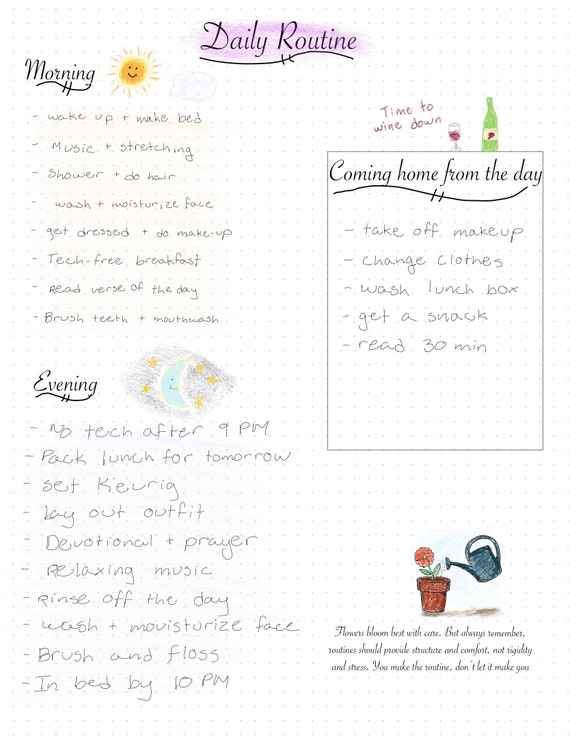 Daily Routine
Morning
- wake up + make bed
- Music + stretching
- Shower + do hair
- wash + moisturize face
- get dressed + do make-up
- Tech-free breakfast
- Read verse of the day
- Brush teeth + mouthwash
Time to
wine down
Coming home from the day
- take off makeup
- change clothes
- wash lunch box
- get a snack
- read 30 min
Evening
- No tech after 9 PM
- Pack lunch for tomorrow
- set Kieurig
- Lay out outfit
- Devotional + prayer
- Relaxing music
- Rinse off the day
- wash + mouisturize face
- Brush and floss
- In bed by 10 PM
Flowers bloom best with care. But always remember,
routines should provide structure and comfort, not rigidity
and stress. You make the routine, don't let it make you